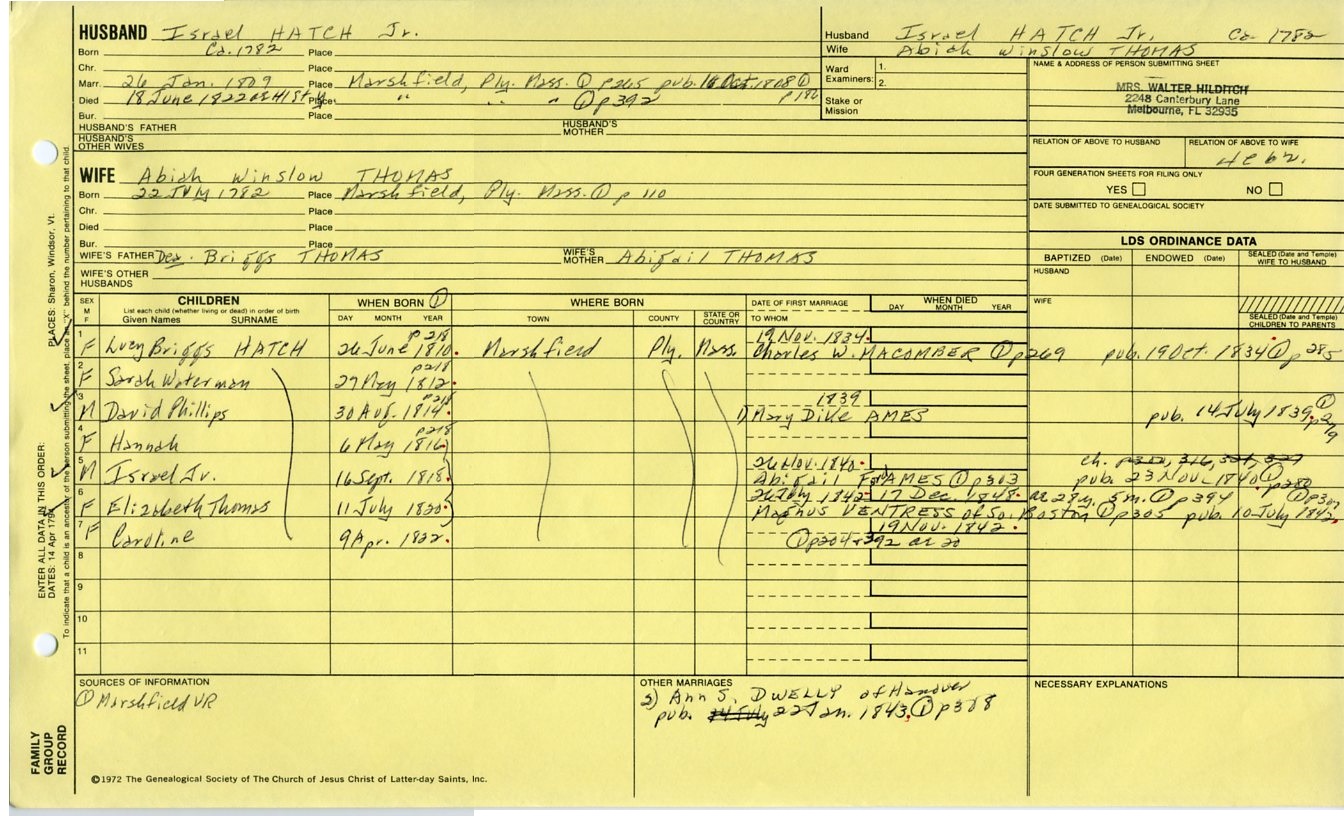 HUSBAND Israel HATCH Jr.
Born Ca. 1782 Place
Chr. Place
Marr. 26 Jan. 1809 Place Marshfield, Ply. Mass. ① p265 pub. 16 Oct. 1808 ① p186
Died 18 June 1822 Place " " " ① p392
Bur. Place
HUSBAND'S FATHER HUSBAND'S MOTHER
HUSBAND'S OTHER WIVES
WIFE Abiah Winslow THOMAS
Born 22 July 1782 Place Marshfield, Ply. Mass. ① p 110
Chr. Place
Died Place
Bur. Place
WIFE'S FATHER Dea. Briggs THOMAS WIFE'S MOTHER Abigail THOMAS
WIFE'S OTHER HUSBANDS
Husband Israel HATCH Jr. Ca 1782
Wife Abiah Winslow THOMAS
Ward Examiners: 1. 2.
Stake or Mission
NAME & ADDRESS OF PERSON SUBMITTING SHEET
MRS. WALTER HILDITCH
2248 Canterbury Lane
Melbourne, FL 32935
RELATION OF ABOVE TO HUSBAND RELATION OF ABOVE TO WIFE
FOUR GENERATION SHEETS FOR FILING ONLY
YES NO
DATE SUBMITTED TO GENEALOGICAL SOCIETY
LDS ORDINANCE DATA
BAPTIZED (Date) ENDOWED (Date) SEALED (Date and Temple) WIFE TO HUSBAND
HUSBAND
WIFE
SEALED (Date and Temple) CHILDREN TO PARENTS
SEX M F CHILDREN WHEN BORN ① WHERE BORN DATE OF FIRST MARRIAGE WHEN DIED
List each child (whether living or dead) in order of birth
Given Names SURNAME DAY MONTH YEAR TOWN COUNTY STATE OR COUNTRY TO WHOM DAY MONTH YEAR
1 p218 19 Nov. 1834
F Lucy Briggs HATCH 26 June 1810 Marshfield Ply. Mass. Charles W. MACOMBER ① p269 pub. 19 Oct. 1834 ① p285
2 p218
F Sarah Waterman 29 May 1812
3 p218 1839
M David Phillips 30 Aug. 1814 1) Mary Dike AMES pub. 14 July 1839 ①
4 p218
F Hannah 6 May 1816
5 26 Nov. 1840
M Israel Jr. 16 Sept. 1818 Abigail AMES ① p303 pub. 23 Nov. 1840 ① p280
6 26 July 1842 17 Dec. 1848 ae 28y. 5m. ① p394
F Elizabeth Thomas 11 July 1820 Magnus VENTRESS of So. Boston ① p305 pub. 10 July 1842
7 19 Nov. 1842
F Caroline 9 Apr. 1822 ① p204 + 392 ae 20
8
9
10
11
SOURCES OF INFORMATION
① Marshfield VR
OTHER MARRIAGES
2) Ann S. DWELLY of Hanover
pub. 22 Jan. 1843 ① p308
NECESSARY EXPLANATIONS
©1972 The Genealogical Society of The Church of Jesus Christ of Latter-day Saints, Inc.
FAMILY GROUP RECORD
ENTER ALL DATA IN THIS ORDER:
DATES: 14 Apr 1794
PLACES: Sharon, Windsor, Vt.
To indicate that a child is an ancestor of the person submitting the sheet, place an "X" behind the number pertaining to that child.